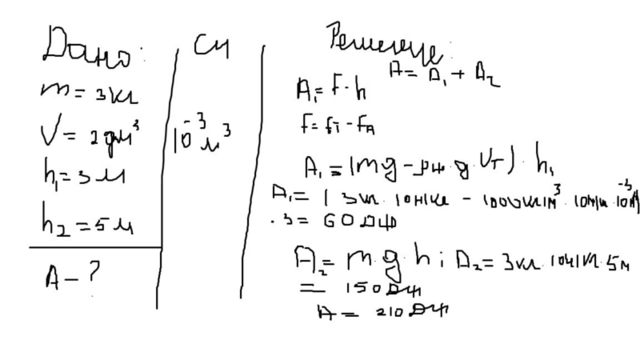 Дано:
m = 3кг
V = 2дм³
h₁ = 3м
h₂ = 5м
A - ?
СИ
10⁻³ м³
Решение:
A = A₁ + A₂
A₁ = F · h
F = Fт - FA
A₁ = (mg - ρж g Vт) · h₁
A₁ = ( 3кг · 10Н/кг - 1000кг/м³ · 10Н/кг · 10⁻³м
· 3 = 60Дж
A₂ = m · g · h ; A₂ = 3кг · 10Н/кг · 5м
= 150Дж
A = 210Дж